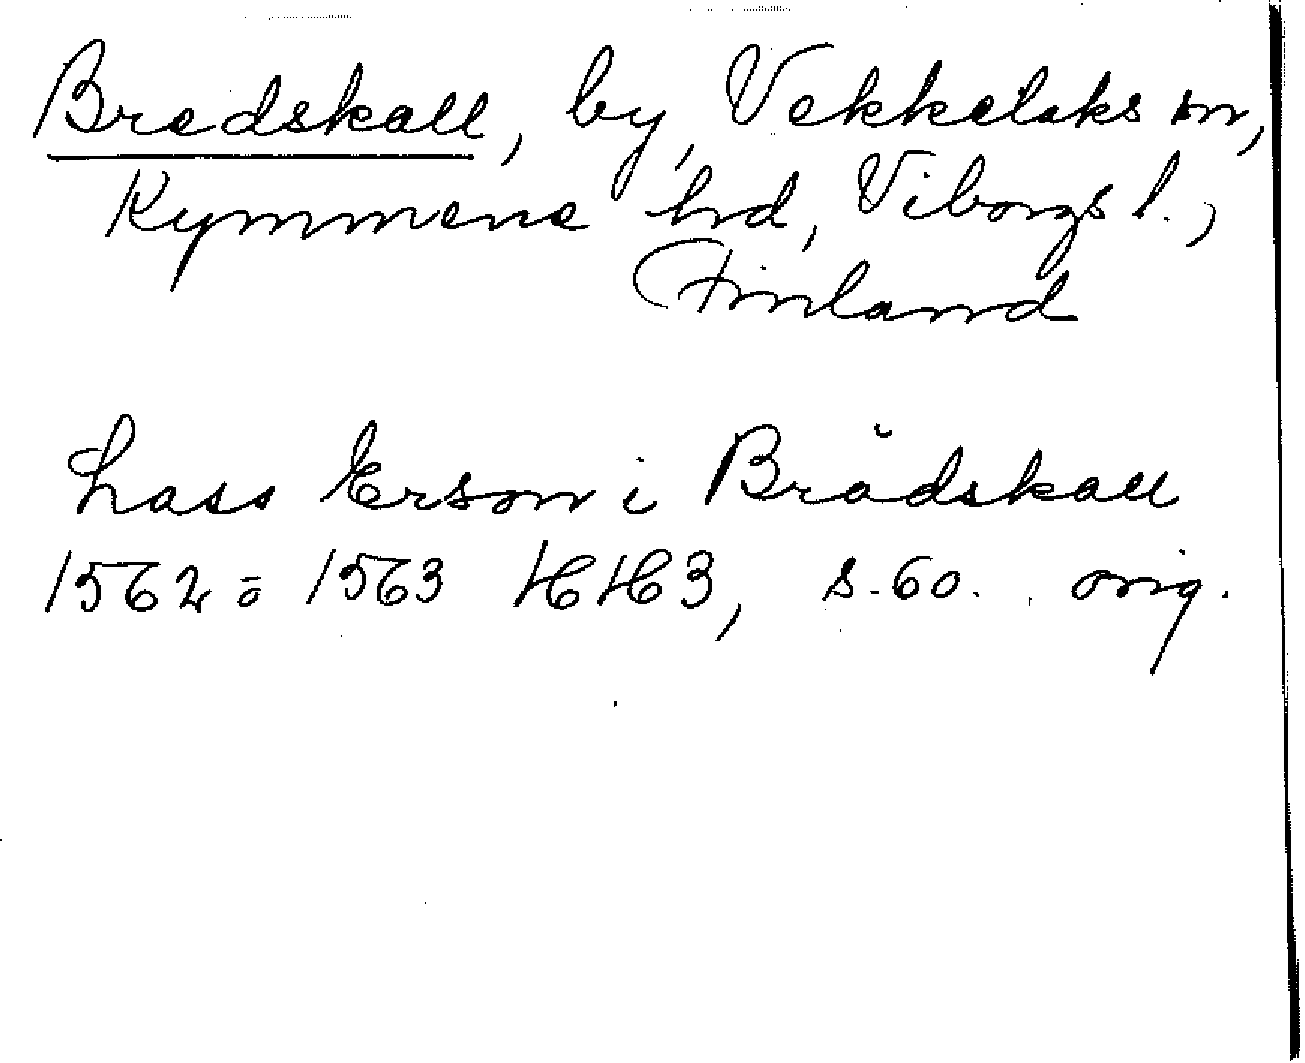 Bredskall, by, Vekkelaks sn,
Kymmene hd, Viborgs l.,
Finland
Lass Erson i Brådskall
1562 = 1563 HH3, s. 60. orig.